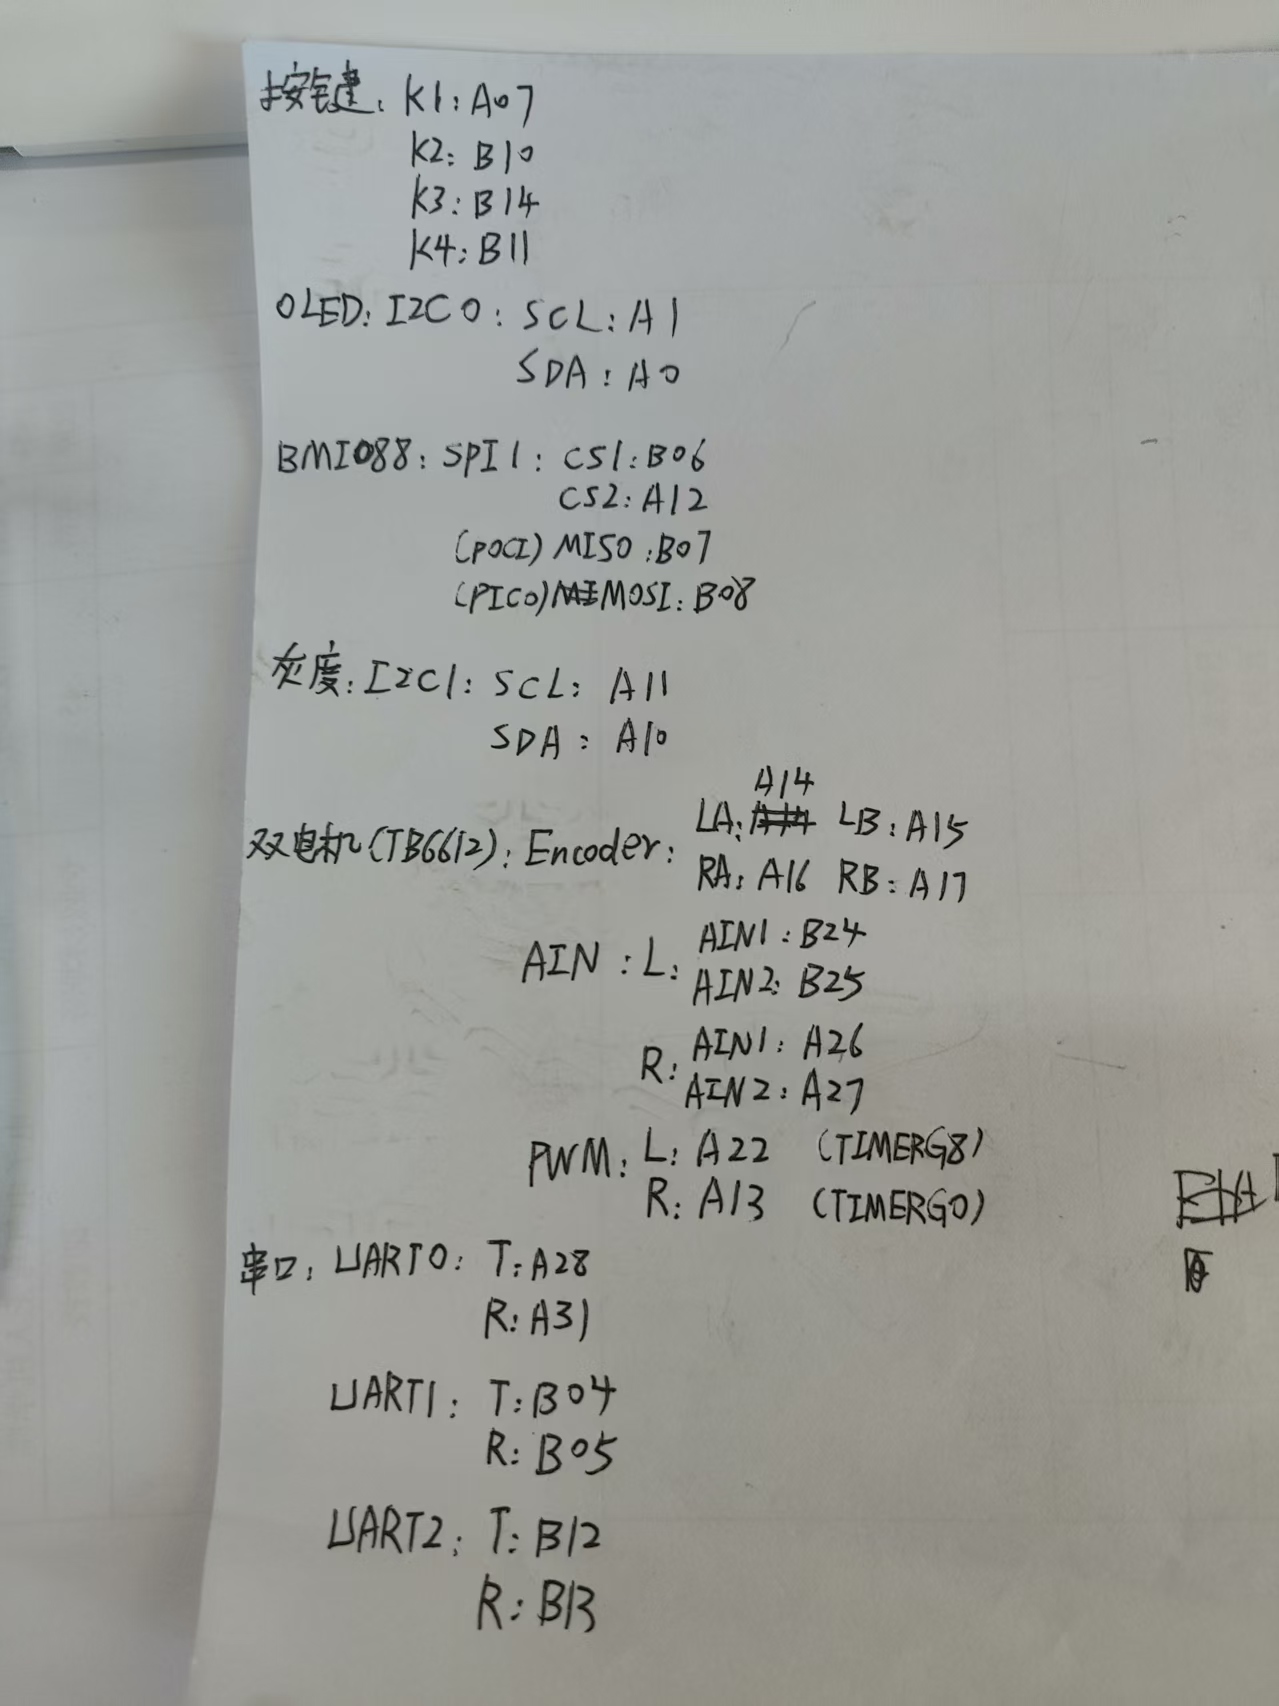 按键：K1：A07
K2：B10
K3：B14
K4：B11
OLED：I2C0：SCL：A1
SDA：A0
BMI088：SPI1：CS1：B06
CS2：A12
(POCI) MISO：B07
(PICO) MOSI：B08
灰度：I2C1：SCL：A11
SDA：A10
A14
双电机(TB6612)：Encoder：LA： LB：A15
RA：A16 RB：A17
AIN：L：AIN1：B24
AIN2：B25
R：AIN1：A26
AIN2：A27
PWM：L：A22 (TIMERG8)
R：A13 (TIMERG0)
串口：UART0：T：A28
R：A31
UART1：T：B04
R：B05
UART2：T：B12
R：B13